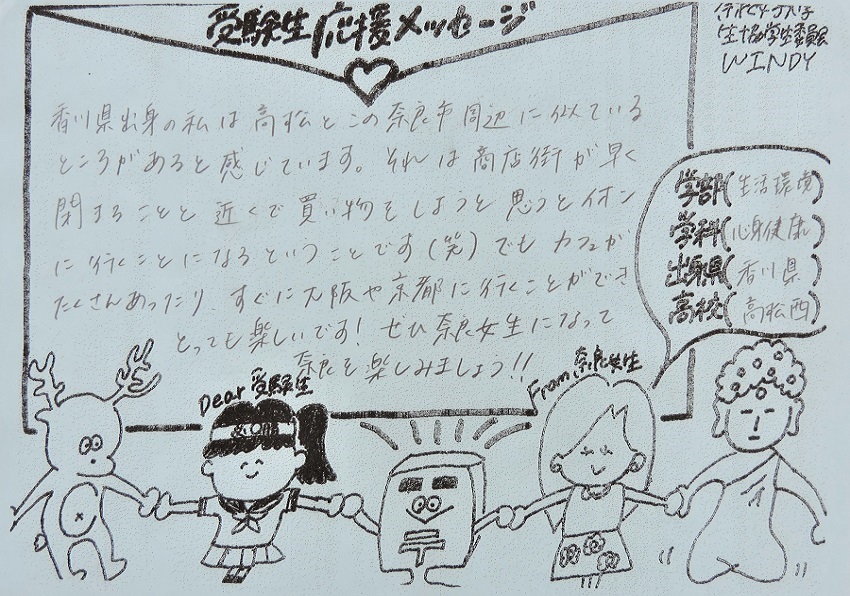 受験生応援メッセージ
生協学生委員会
WINDY
香川県出身の私は高松とこの奈良市周辺に似ている
ところがあると感じています。それは商店街が早く
閉まることと近くで買い物をしようと思うとイオン
に行くことになるということです(笑)でもカフェが
たくさんあったり、すぐに大阪や京都に行くことができ
とっても楽しいです!ぜひ奈良女生になって
奈良を楽しみましょう!!
学部(生活環境)
学科(心身健康)
出身県(香川県)
高校(高松西)
Dear 受験生
From 奈良女生
必○勝
〒